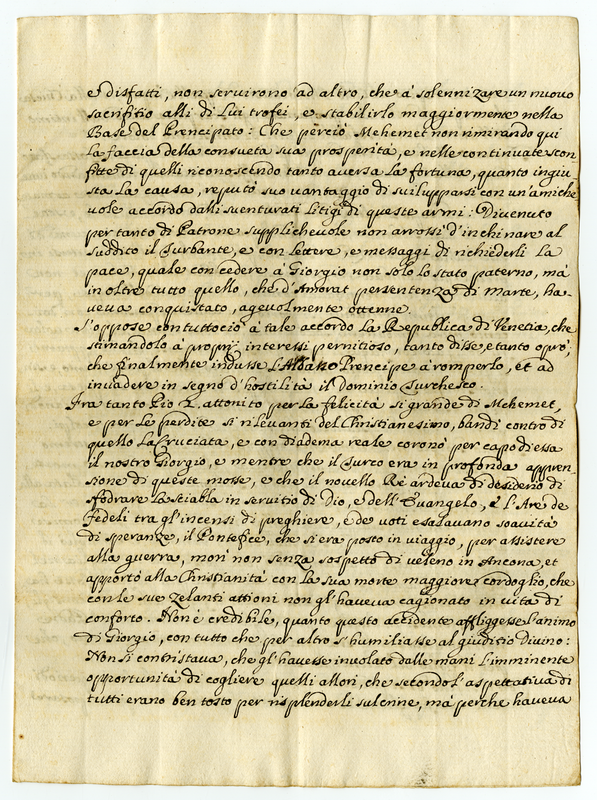 e disfatti, non servirono ad altro, che à solennizare un nuovo
sacrifitio alli di Lui trofei, e stabilirlo maggiormente nella
Base del Prencipato: Che perciò Mehemet non rimirando qui
la faccia della consueta sua prosperità, e nelle continuate scon
fitte di quelli riconoscendo tanto aversa la fortuna, quanto ingiu-
sta la causa, reputò suo vantaggio di svilupparsi con un'amiche
vole accordo dalli sventurati litigi di queste armi: Divenuto
per tanto di Patrone supplichevole non arrossì d'inchinare al
suddito il Turbante, e con lettere, e messaggi di richiederli la
pace, quale con cedere à Giorgio non solo lo stato paterno, mà
in oltre tutto quello, che d'Amorat per sentenza di Marte, ha-
veva conquistato, agevolmente ottenne.
S'oppose con tuttociò à tale accordo la Republica di Venetia, che
stimandolo à proprij interessi pernitioso, tanto disse, e tanto oprò,
che finalmente indusse l'Albano Prencipe à romperlo, et ad
invadere in segno d'hostilità il Dominio Turchesco.
Fra tanto Pio 2. attonito per la felicità si grande di Mehemet,
e per le perdite si rilevanti del Christianesimo, bandì contro di
quello la Cruciata, e con diadema reale coronò per capo di essa
il nostro Giorgio, e mentre che il Turco era in profonda appren-
sione di queste mosse, e che il novello Rè ardeva di desiderio di
sfodrare la sciabla in servitio di Dio, e dell'Evangelo, e l'Are de
fedeli tra gl'incensi di preghiere, e de voti esalavano soavità
di speranze, il Pontefice, che si era posto in viaggio, per assistere
alla guerra, morì non senza sospetto di veleno in Ancona, et
apportò alla Christianità con la sua morte maggiore cordoglio, che
con le sue zelanti attioni non gl'haveva cagionato in vita di
conforto. Non è credibile, quanto questo accidente affliggesse l'animo
di Giorgio, con tutto che per altro s'humiliasse al giuditio Divino:
Non si contristava, che gl'havesse involato dalle mani l'imminente
opportunità di cogliere quelli allori, che secondo l'aspettativa di
tutti erano ben tosto per risplenderli sul crine, mà perche haveva